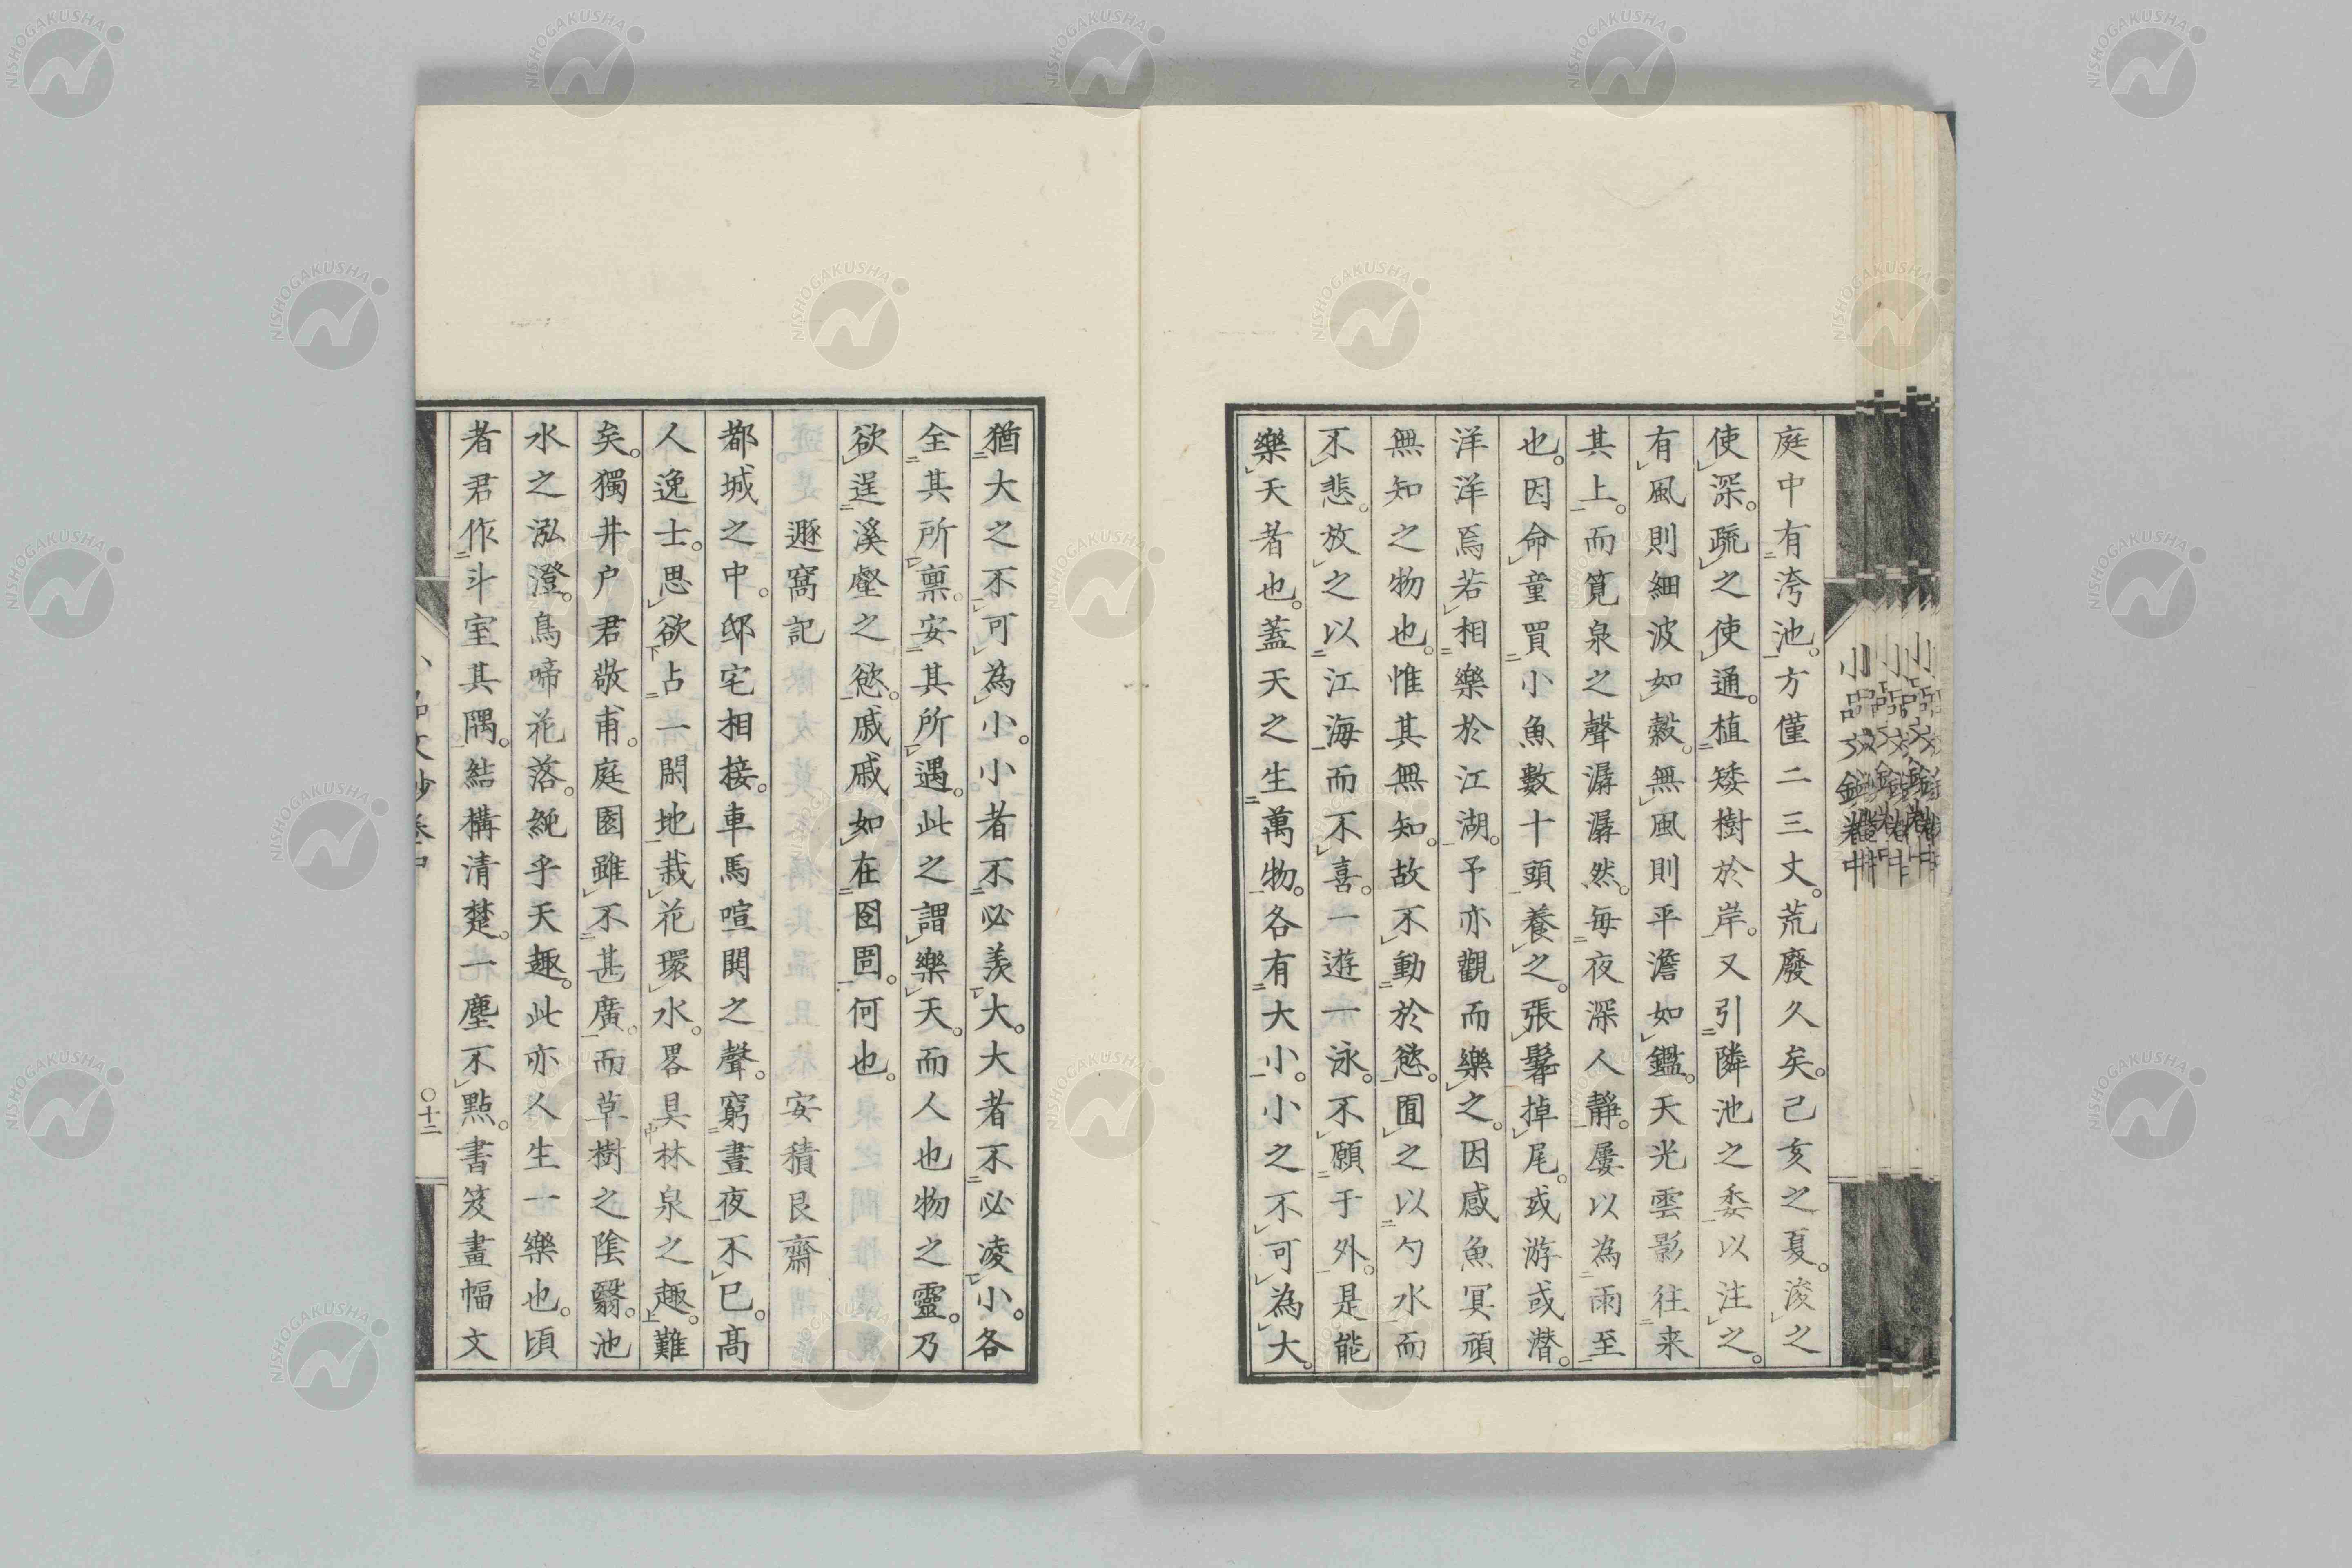 庭中有洿池。方僅二三丈。荒廢久矣。己亥之夏。浚之
使深。疏之使通。植矮樹於岸。又引隣池之委以注之。
有風則細波如縠。無風則平澹如鑑。天光雲影往来
其上。而筧泉之聲潺潺然。每夜深人靜。屢以為雨至
也。因命童買小魚數十頭養之。張鬐掉尾。或游或潛。
洋洋焉若相樂於江湖。予亦觀而樂之。因感魚冥頑
無知之物也。惟其無知。故不動於慾。囿之以勺水而
不悲。放之以江海而不喜。一遊一泳。不願于外。是能
樂天者也。蓋天之生萬物。各有大小。小之不可為大。
猶大之不可為小。小者不必羨大。大者不必凌小。各
全其所禀。安其所遇。此之謂樂天。而人也物之靈。乃
欲逞溪壑之慾。戚戚如在囹圄。何也。
遯窩記 安積艮齋
都城之中。邸宅相接。車馬喧鬨之聲。窮晝夜不已。高
人逸士。思欲占一閑地栽花環水。畧具林泉之趣。難
矣。獨井户君敬甫。庭園雖不甚廣。而草樹之陰翳。池
水之泓澄。鳥啼花落。純乎天趣。此亦人生一樂也。頃
者君作斗室其隅。結構清楚。一塵不點。書笈畫幅文
小品文鈔卷中
〇十二
NISHOGAKUSHA